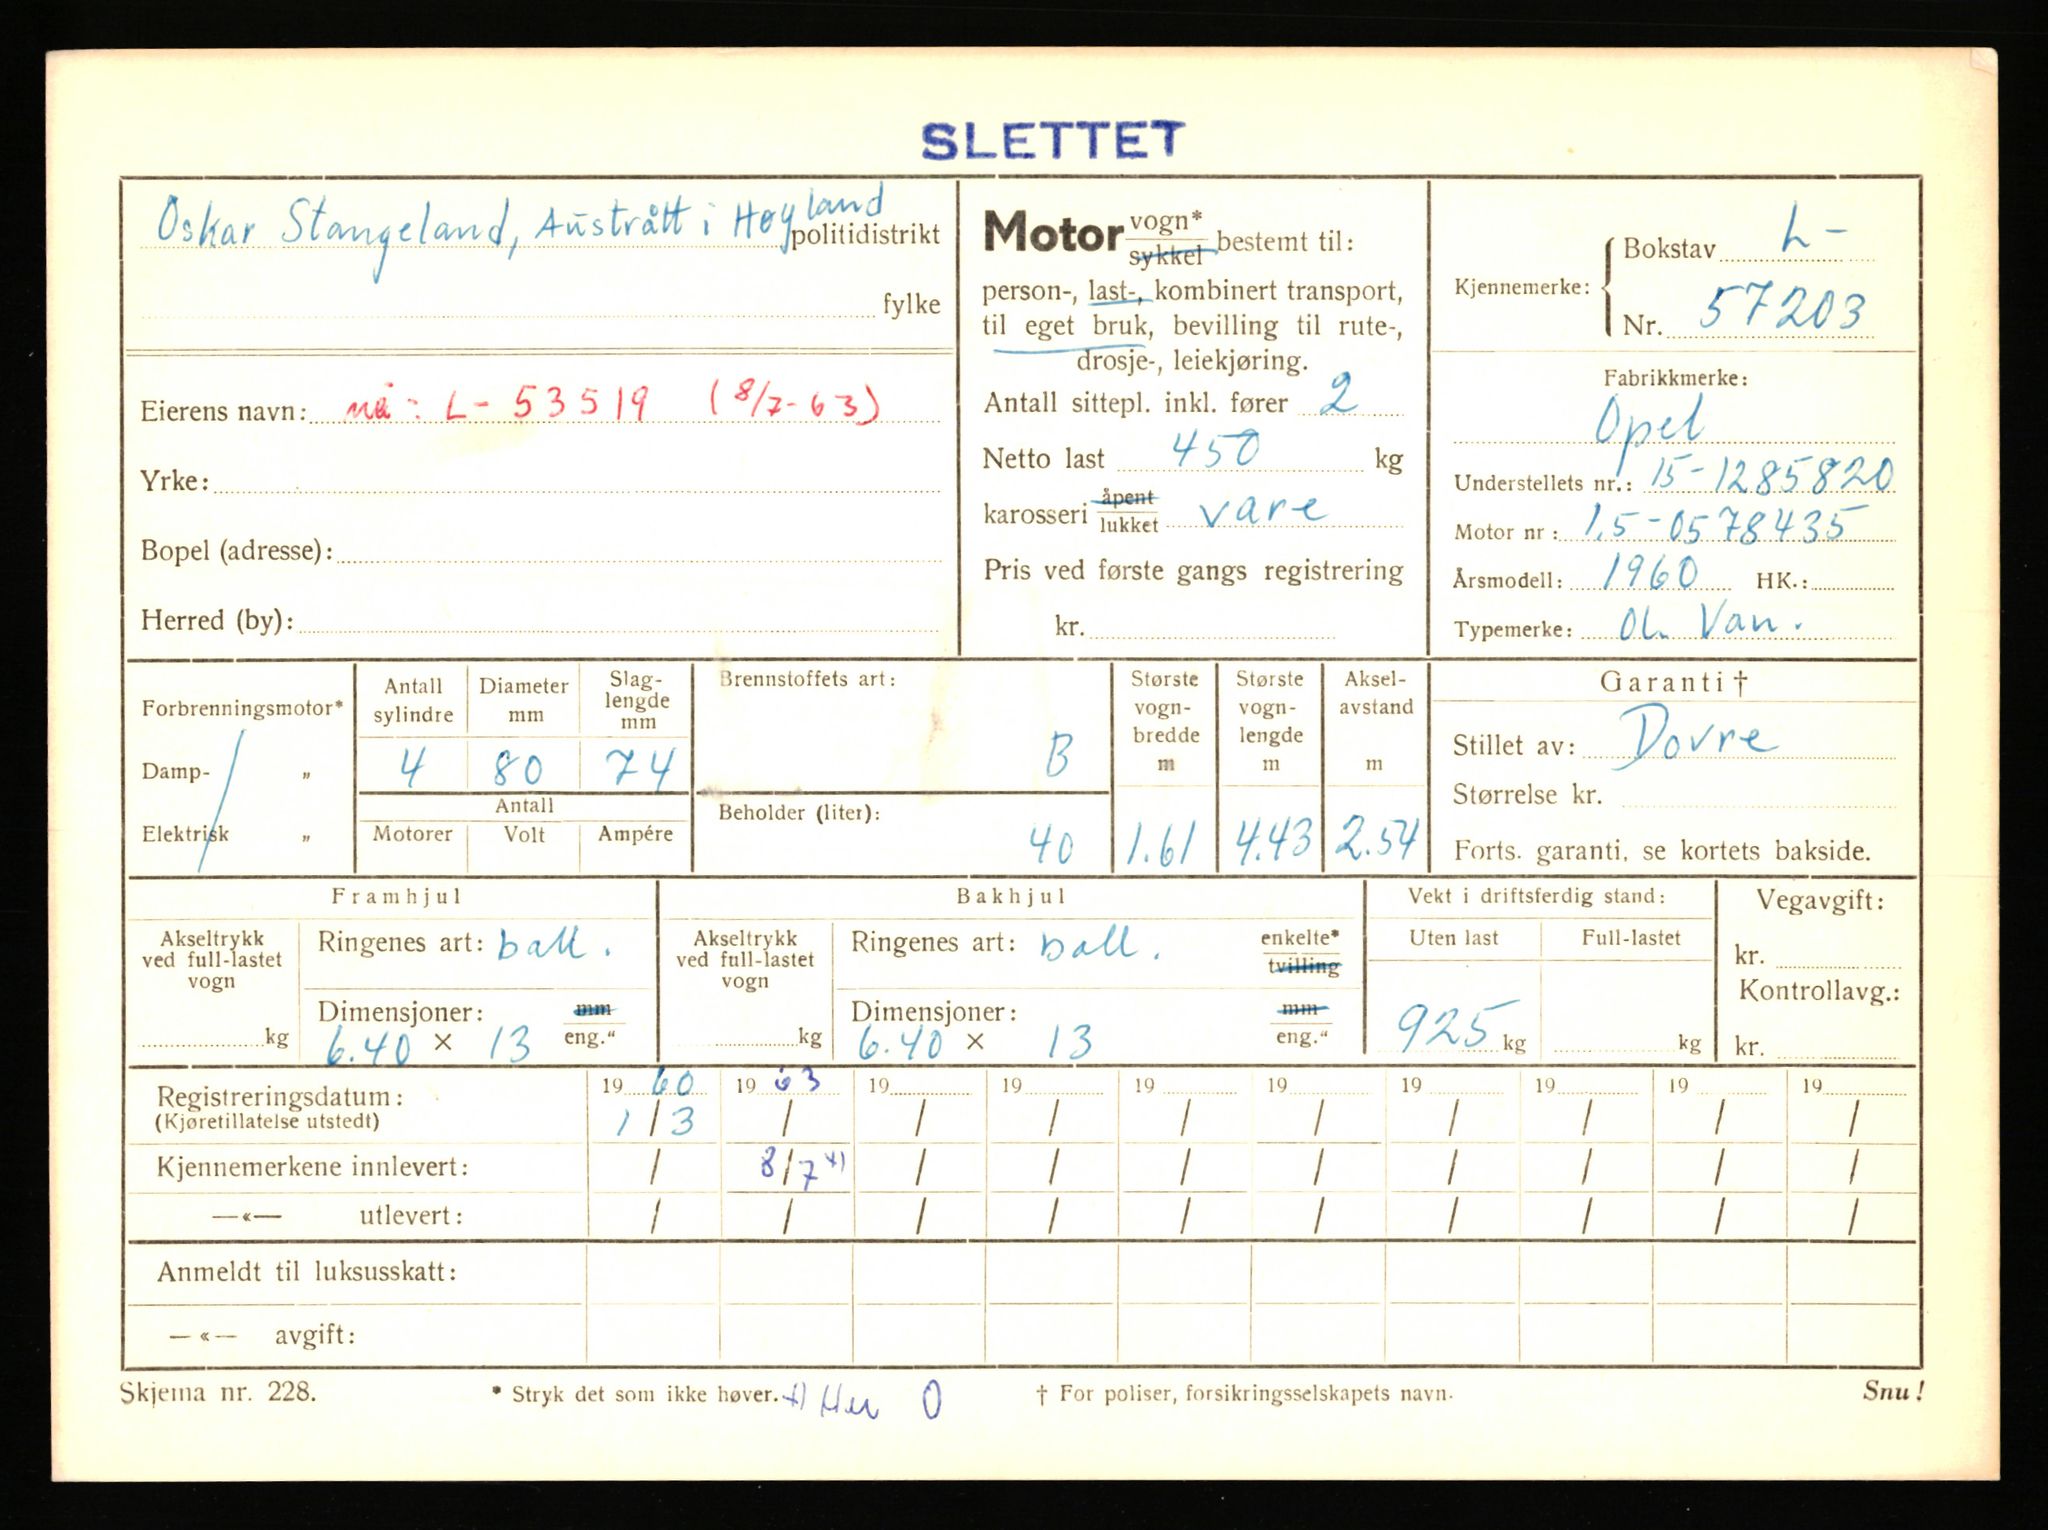 SLETTET
Oskar Stangeland, Austrått i Høyland
politidistrikt
fylke
Eierens navn: nå: L- 53519 (8/7-63)
Yrke:
Bopel (adresse):
Herred (by):
Motor vogn* sykkel bestemt til:
person-, last-, kombinert transport,
til eget bruk, bevilling til rute-,
drosje-, leiekjøring.
Antall sittepl. inkl. fører 2
Netto last 450 kg
karosseri åpent lukket vare
Pris ved første gangs registrering
kr.
Kjennemerke: Bokstav L-
Nr. 57203
Fabrikkmerke:
Opel
Understellets nr.: 15-1285820
Motor nr: 1,5-0578435
Årsmodell: 1960 HK.:
Typemerke: Ol. Van.
Forbrenningsmotor*
Damp- „
Elektrisk „
Antall sylindre
Diameter mm
Slag-
lengde
mm
4 80 74
Antall
Motorer Volt Ampére
Brennstoffets art:
B
Beholder (liter):
40
Største
vogn-
bredde
m
1.61
Største
vogn-
lengde
m
4.43
Aksel-
avstand
m
2.54
Garanti †
Stillet av: Dovre
Størrelse kr.
Forts. garanti, se kortets bakside.
Framhjul
Akseltrykk
ved full-lastet
vogn
kg
Ringenes art: ball.
Dimensjoner: mm
6.40 × 13 eng."
Bakhjul
Akseltrykk
ved full-lastet
vogn
kg
Ringenes art: ball. enkelte*
tvilling
Dimensjoner: mm
6.40 × 13 eng."
Vekt i driftsferdig stand:
Uten last Full-lastet
925 kg kg
Vegavgift:
kr.
Kontrollavg.:
kr.
Registreringsdatum: 19 60 19 63 19 19 19 19 19 19 19 19
(Kjøretillatelse utstedt) 1/3 / / / / / / / / /
Kjennemerkene innlevert: / 8/7 x) / / / / / / / /
—«— utlevert: / / / / / / / / / /
Anmeldt til luksusskatt:
—«— avgift:
Skjema nr. 228. * Stryk det som ikke høver. x) Her 0 † For poliser, forsikringsselskapets navn. Snu!